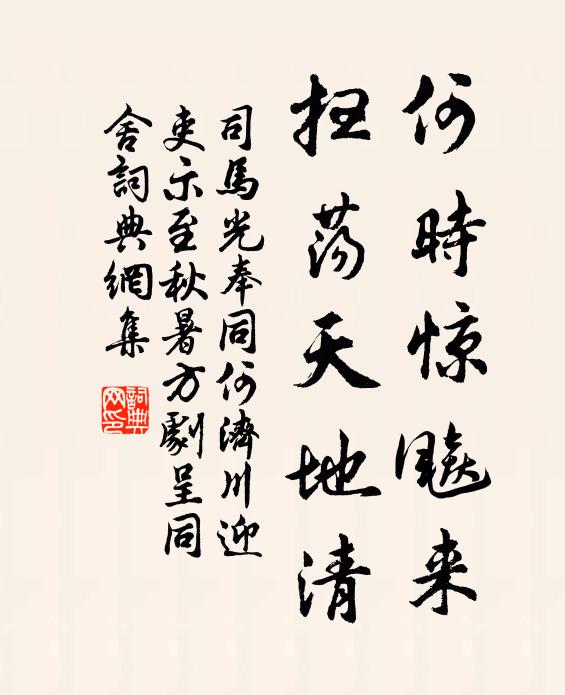 何時惊飇来
扫荡天地清
司馬光奉同何濟川迎
吏示至秋暑方劇呈同
舍詞典網集
詞典
网印